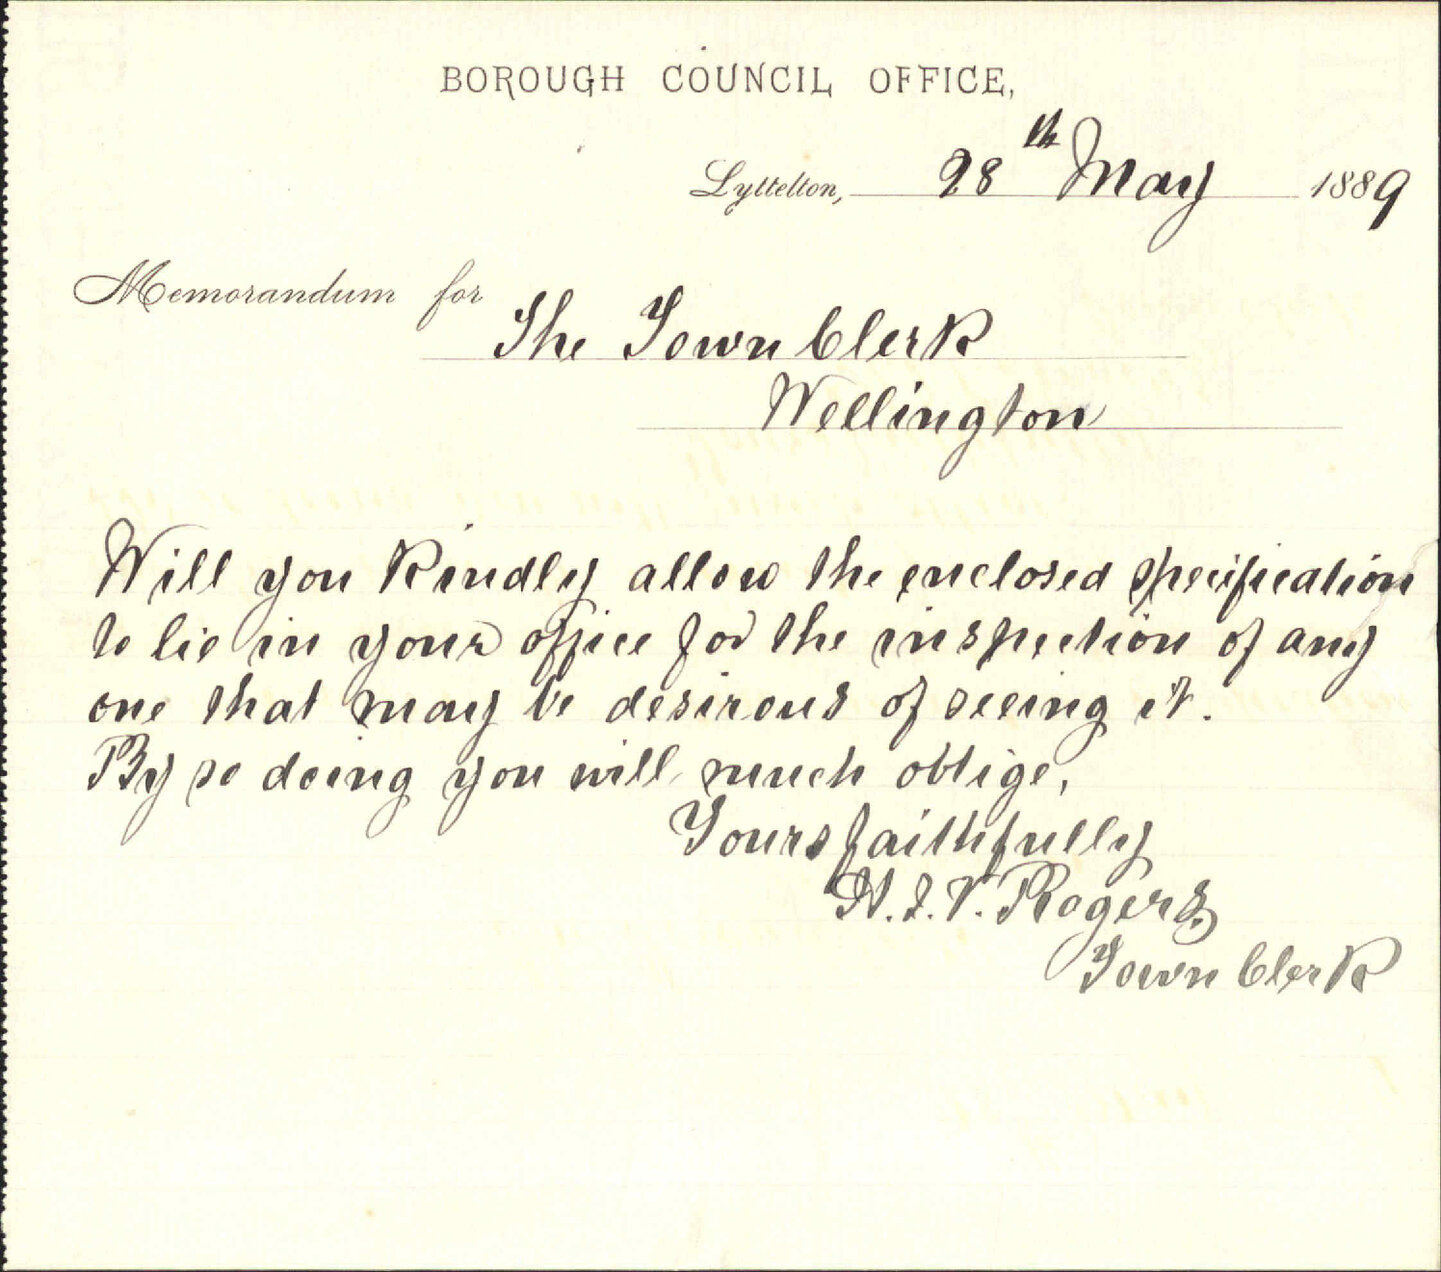 BOROUGH COUNCIL OFFICE,
Lyttelton, 28th May 1889
Memorandum for
The Town Clerk
Wellington
Will you kindly allow the enclosed specification
to lie in your office for the inspection of any
one that may be desirous of seeing it.
By so doing you will much oblige,
Yours faithfully
H. J. V. Rogers
Town Clerk